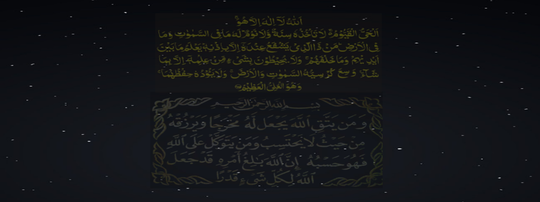 الله لا إله إلا هو
الحي القيوم لا تأخذه سنة ولا نوم له ما في السموت وما
في الأرض من ذا الذي يشفع عنده إلا بإذنه يعلم ما بين
أيديهم وما خلفهم ولا يحيطون بشيء من علمه إلا بما
شاء وسع كرسيه السموت والأرض ولا يؤده حفظهما
وهو العلي العظيم
بسم الله الرحمن الرحيم
ومن يتق الله يجعل له مخرجا ويرزقه
من حيث لا يحتسب ومن يتوكل على الله
فهو حسبه إن الله بلغ أمره قد جعل
الله لكل شيء قدرا